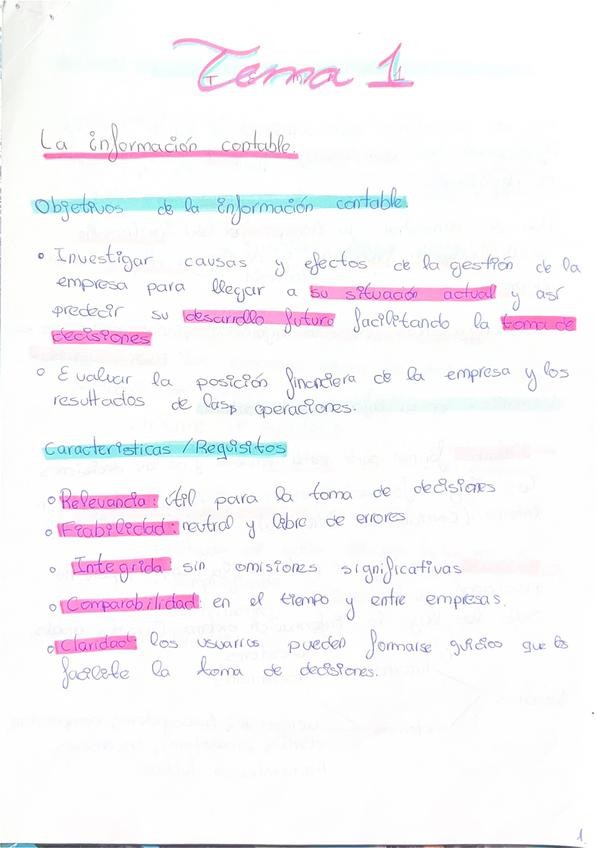 Tema 1
La información contable.
Objetivos de la información contable.
Investigar causas y efectos de la gestión de la
empresa para llegar a su situación actual y así
predecir su desarrollo futuro facilitando la toma de
decisiones
Evaluar la posición financiera de la empresa y los
resultados de las operaciones.
Características / Requisitos
Relevancia: útil para la toma de decisiones
Fiabilidad: neutral y libre de errores
Integrida: sin omisiones significativas
Comparabilidad: en el tiempo y entre empresas.
Claridad: los usuarios pueden formarse guicios que les
facilite la toma de decisiones.
1